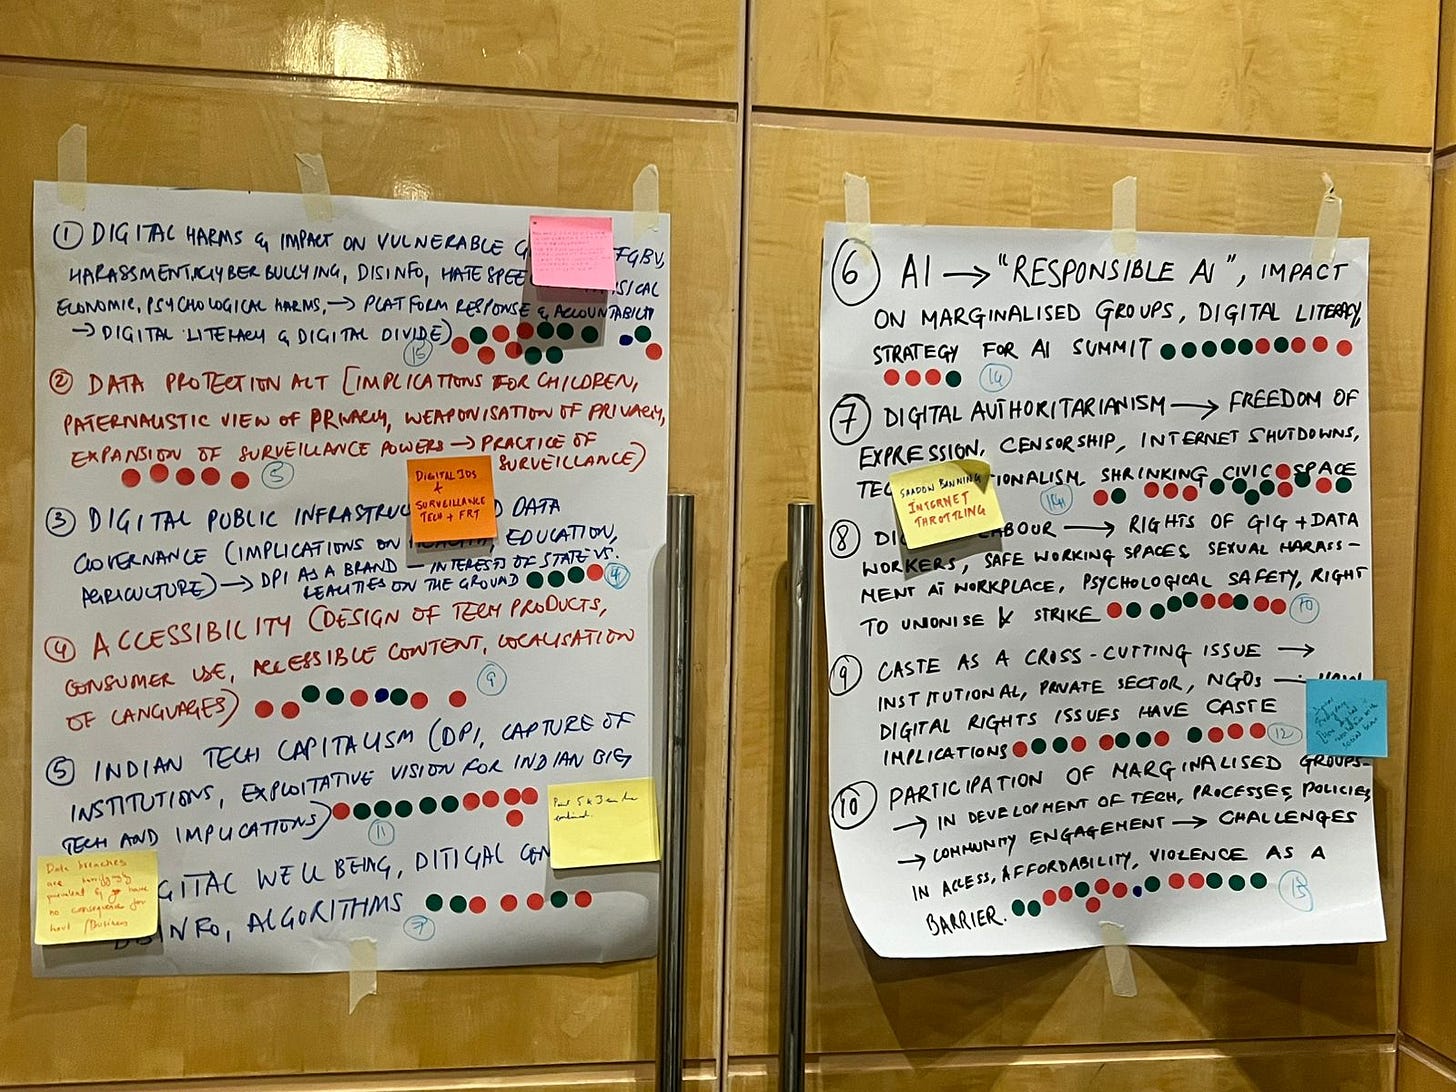 ① DIGITAL HARMS & IMPACT ON VULNERABLE G FGBV,
HARASSMENT, CYBER BULLYING, DISINFO, HATE SPEE SICAL
ECONOMIC, PSYCHOLOGICAL HARMS, → PLATFORM RESPONSE & ACCOUNTABILITY
→ DIGITAL LITERACY & DIGITAL DIVIDE)
15
② DATA PROTECTION ACT [IMPLICATIONS FOR CHILDREN,
PATERNALISTIC VIEW OF PRIVACY, WEAPONISATION OF PRIVACY,
EXPANSION OF SURVEILLANCE POWERS → PRACTICE OF
SURVEILLANCE)
5
DIGITAL IDS
&
SURVEILLANCE
TECH + FRT
③ DIGITAL PUBLIC INFRASTRUC D DATA
GOVERNANCE (IMPLICATIONS ON HEALTH, EDUCATION,
AGRICULTURE) → DPI AS A BRAND — INTERESTS OF STATE VS.
REALITIES ON THE GROUND
4
④ ACCESSIBILITY (DESIGN OF TECH PRODUCTS,
CONSUMER USE, ACCESSIBLE CONTENT, LOCALISATION
OF LANGUAGES)
9
⑤ INDIAN TECH CAPITALISM (DPI, CAPTURE OF
INSTITUTIONS, EXPLOITATIVE VISION FOR INDIAN BIG
TECH AND IMPLICATIONS)
11
combined.
Data breaches
are horrifyingly
prevalent & have
no consequence for
/Business
GITAL WELL BEING, DITIGAL CON
DISINFO, ALGORITHMS
7
⑥ AI → "RESPONSIBLE AI", IMPACT
ON MARGINALISED GROUPS, DIGITAL LITERACY,
STRATEGY FOR AI SUMMIT
14
⑦ DIGITAL AUTHORITARIANISM → FREEDOM OF
EXPRESSION, CENSORSHIP, INTERNET SHUTDOWNS,
TEC IONALISM, SHRINKING CIVIC SPACE
14
SHADOW BANNING
INTERNET
THROTTLING
⑧ DI ABOUR → RIGHTS OF GIG + DATA
WORKERS, SAFE WORKING SPACES, SEXUAL HARASS-
MENT AT WORKPLACE, PSYCHOLOGICAL SAFETY, RIGHT
TO UNIONISE & STRIKE
10
⑨ CASTE AS A CROSS-CUTTING ISSUE →
INSTITUTIONAL, PRIVATE SECTOR, NGOs — HOW
DIGITAL RIGHTS ISSUES HAVE CASTE
IMPLICATIONS
12
⑩ PARTICIPATION OF MARGINALISED GROUPS-
→ IN DEVELOPMENT OF TECH, PROCESSES, POLICIES,
→ COMMUNITY ENGAGEMENT → CHALLENGES
IN ACCESS, AFFORDABILITY, VIOLENCE AS A
BARRIER.
15